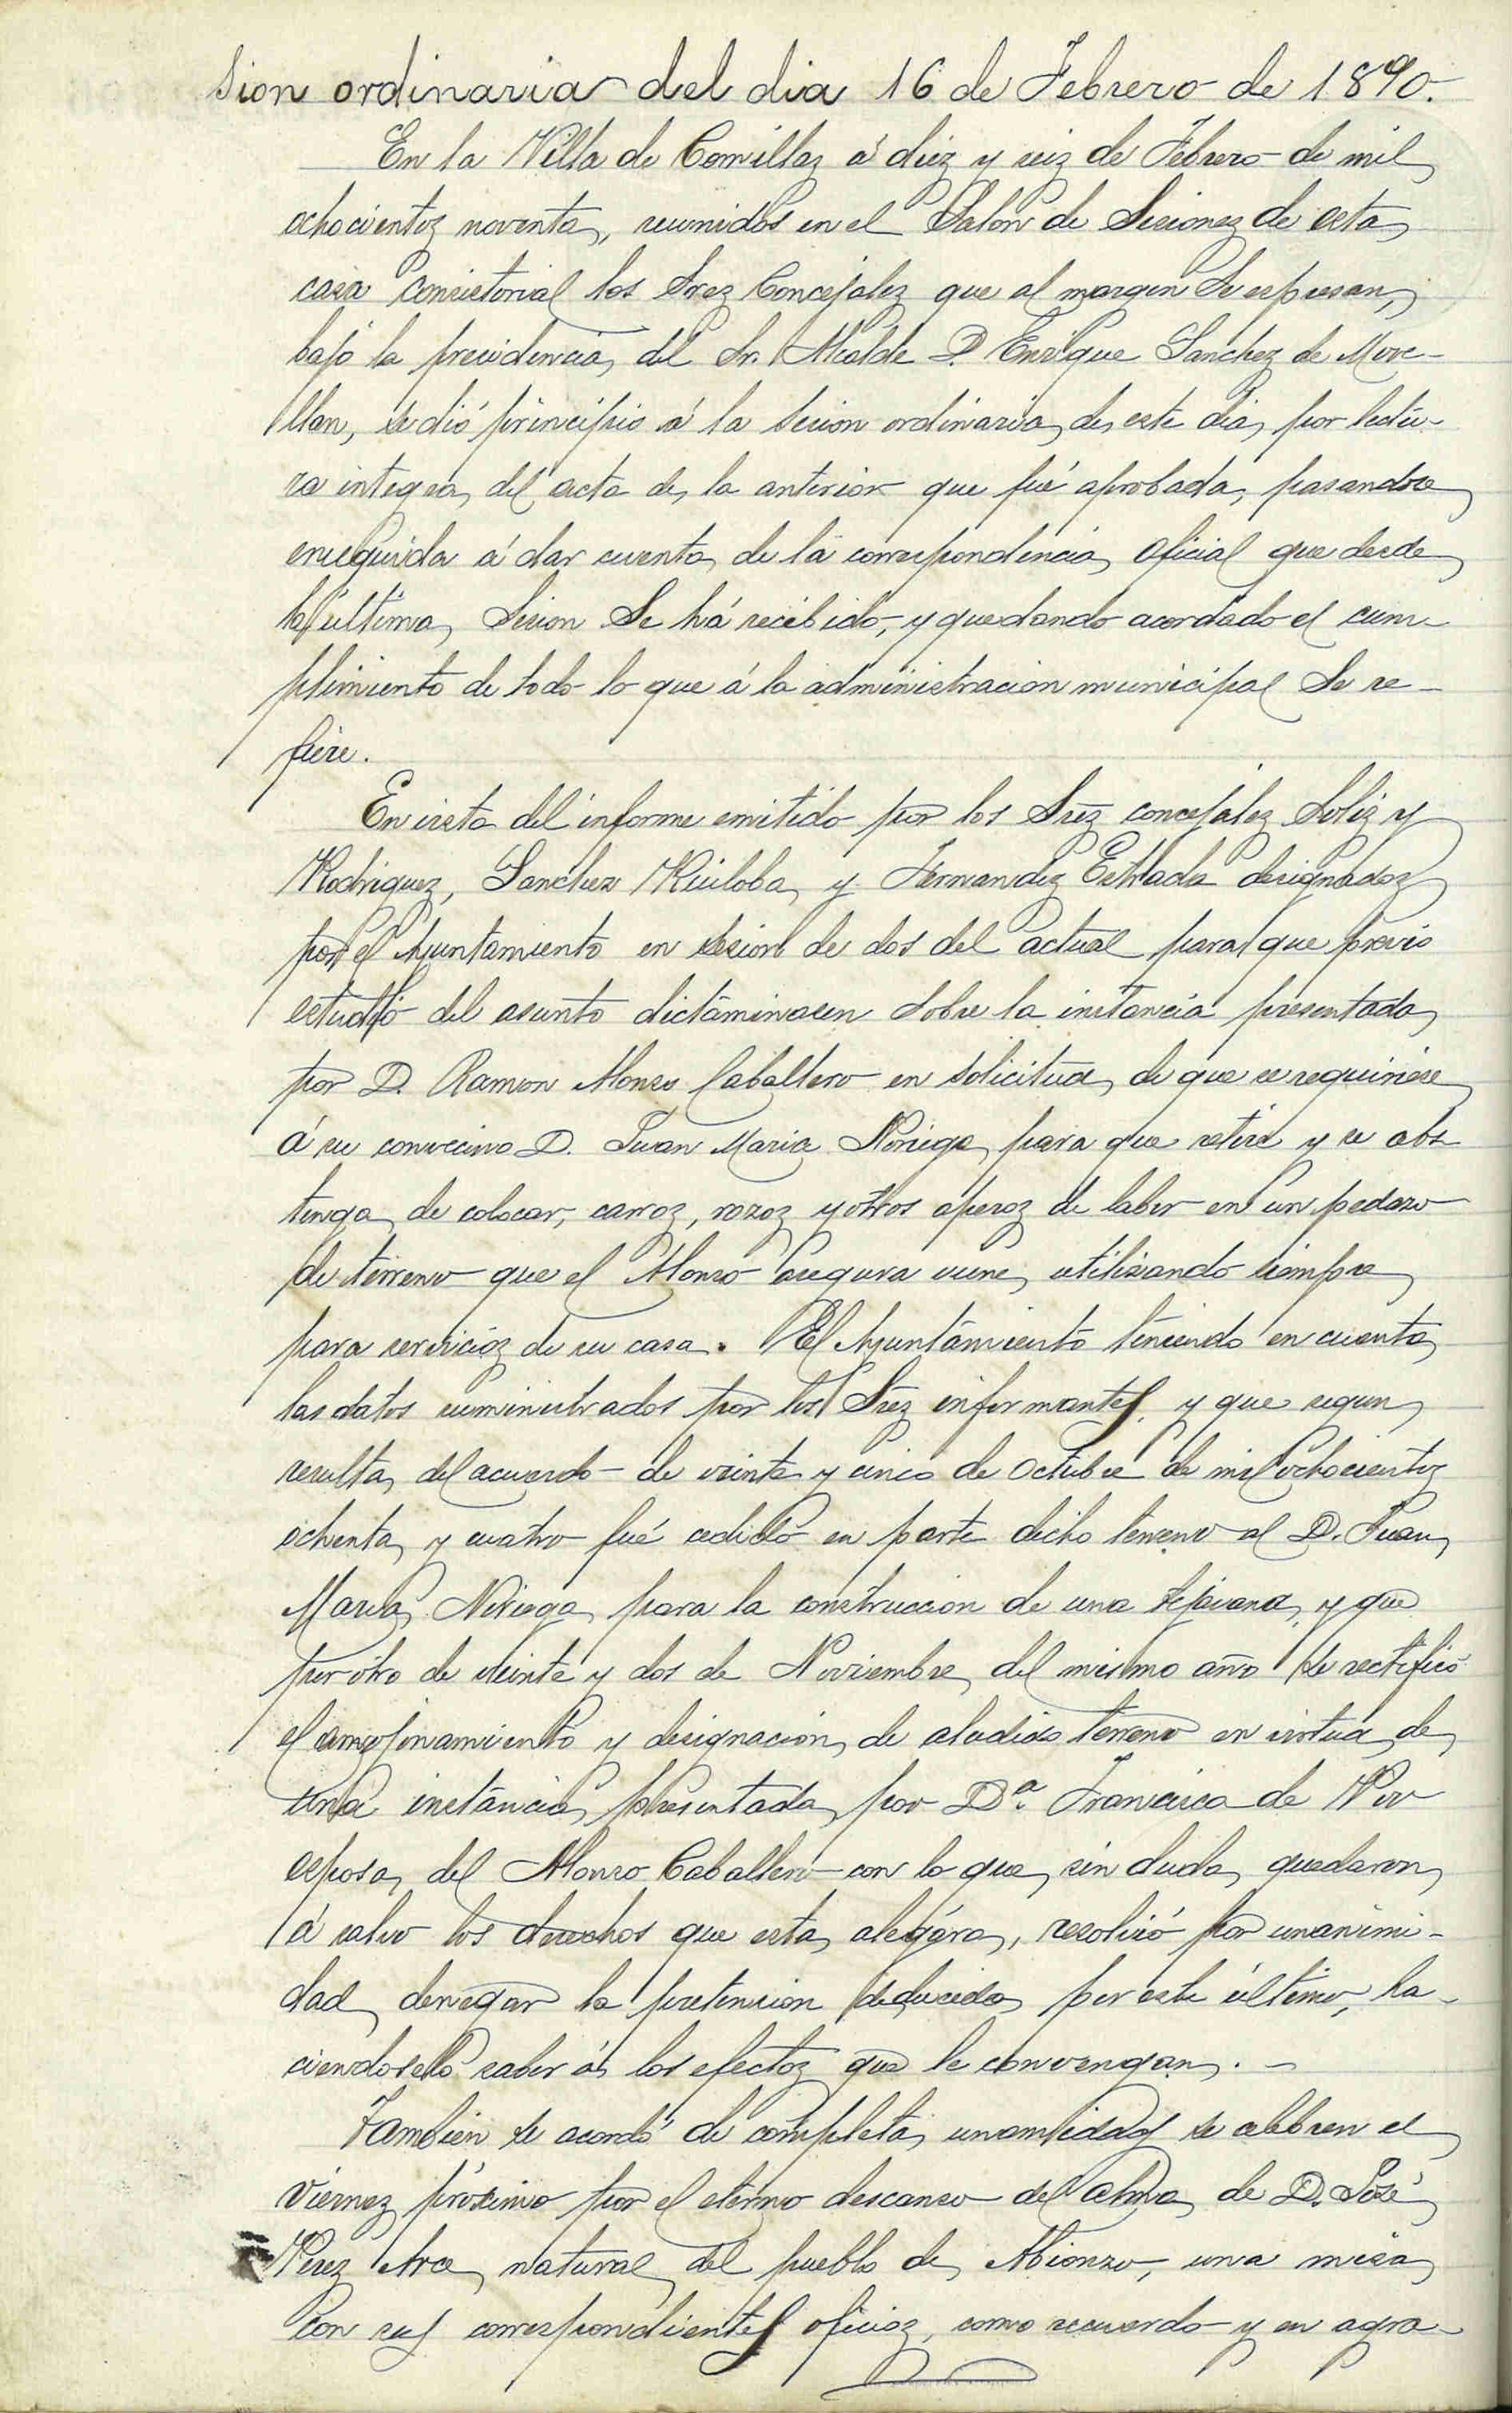 sion ordinaria del dia 16 de Febrero de 1890.
En la Villa de Comillas á diez y seis de Febrero de mil
ochocientos noventa, reunidos en el Salon de Sesiones de esta
casa Consistorial los Sres Concejales que al margen se espresan,
bajo la presidencia del Sr. Alcalde D. Enrique Sanchez de Move-
llan, se dió principio á la sesion ordinaria de este dia, por lectu-
ra integra del acta de la anterior que fué aprobada, pasandose
enseguida á dar cuenta de la correspondencia oficial que desde
la última Sesion se há recibido, y quedando acordado el cum-
plimiento de todo lo que á la administracion municipal se re-
fiere.
En vista del informe emitido por los Sres concejales Solis y
Rodriguez, Sanchez Ruiloba y Fernandez Estrada designados
por el Ayuntamiento en sesion de dos del actual para que previo
estudio del asunto dictáminasen sobre la instancia presentada
por D. Ramon Alonso Caballero en solicitud de que se requiriese
á su convecino D. Juan Maria Noriega para que retire y se abs
tenga de colocar, carros, rozos y otros aperos de labor en un pedazo
de terreno que el Alonso asegura viene utilizando siempre
para servicios de su casa. El Ayuntámiento teniendo en cuenta
los datos suministrados por los Sres informantes y que segun
resulta del acuerdo de veinte y cinco de Octubre de mil ochocientos
ochenta y cuatro fué cedido en parte dicho terreno al D. Juan
Maria Noriega para la construccion de una tejavana, y que
por otro de veinte y dos de Noviembre del mismo año se rectificó
el amojonamiento y designacion de aludido terreno en virtud de
una instáncia presentada por Dª. Francisca de
esposa del Alonso Caballero con lo que sin duda quedaron
á salvo los derechos que esta alegára, resolvió por unanimi-
dad denegar la pretension deducida por este último, ha-
ciendoselo saber á los efectos que le convengan.
Tambien se acordó de completa unamidad se celebren el
viernes próximo por el eterno descanso del alma de D. José
Perez Arce natural del pueblo de Abionzo, una misa
con sus correspondientes oficios, como recuerdo y en agra-